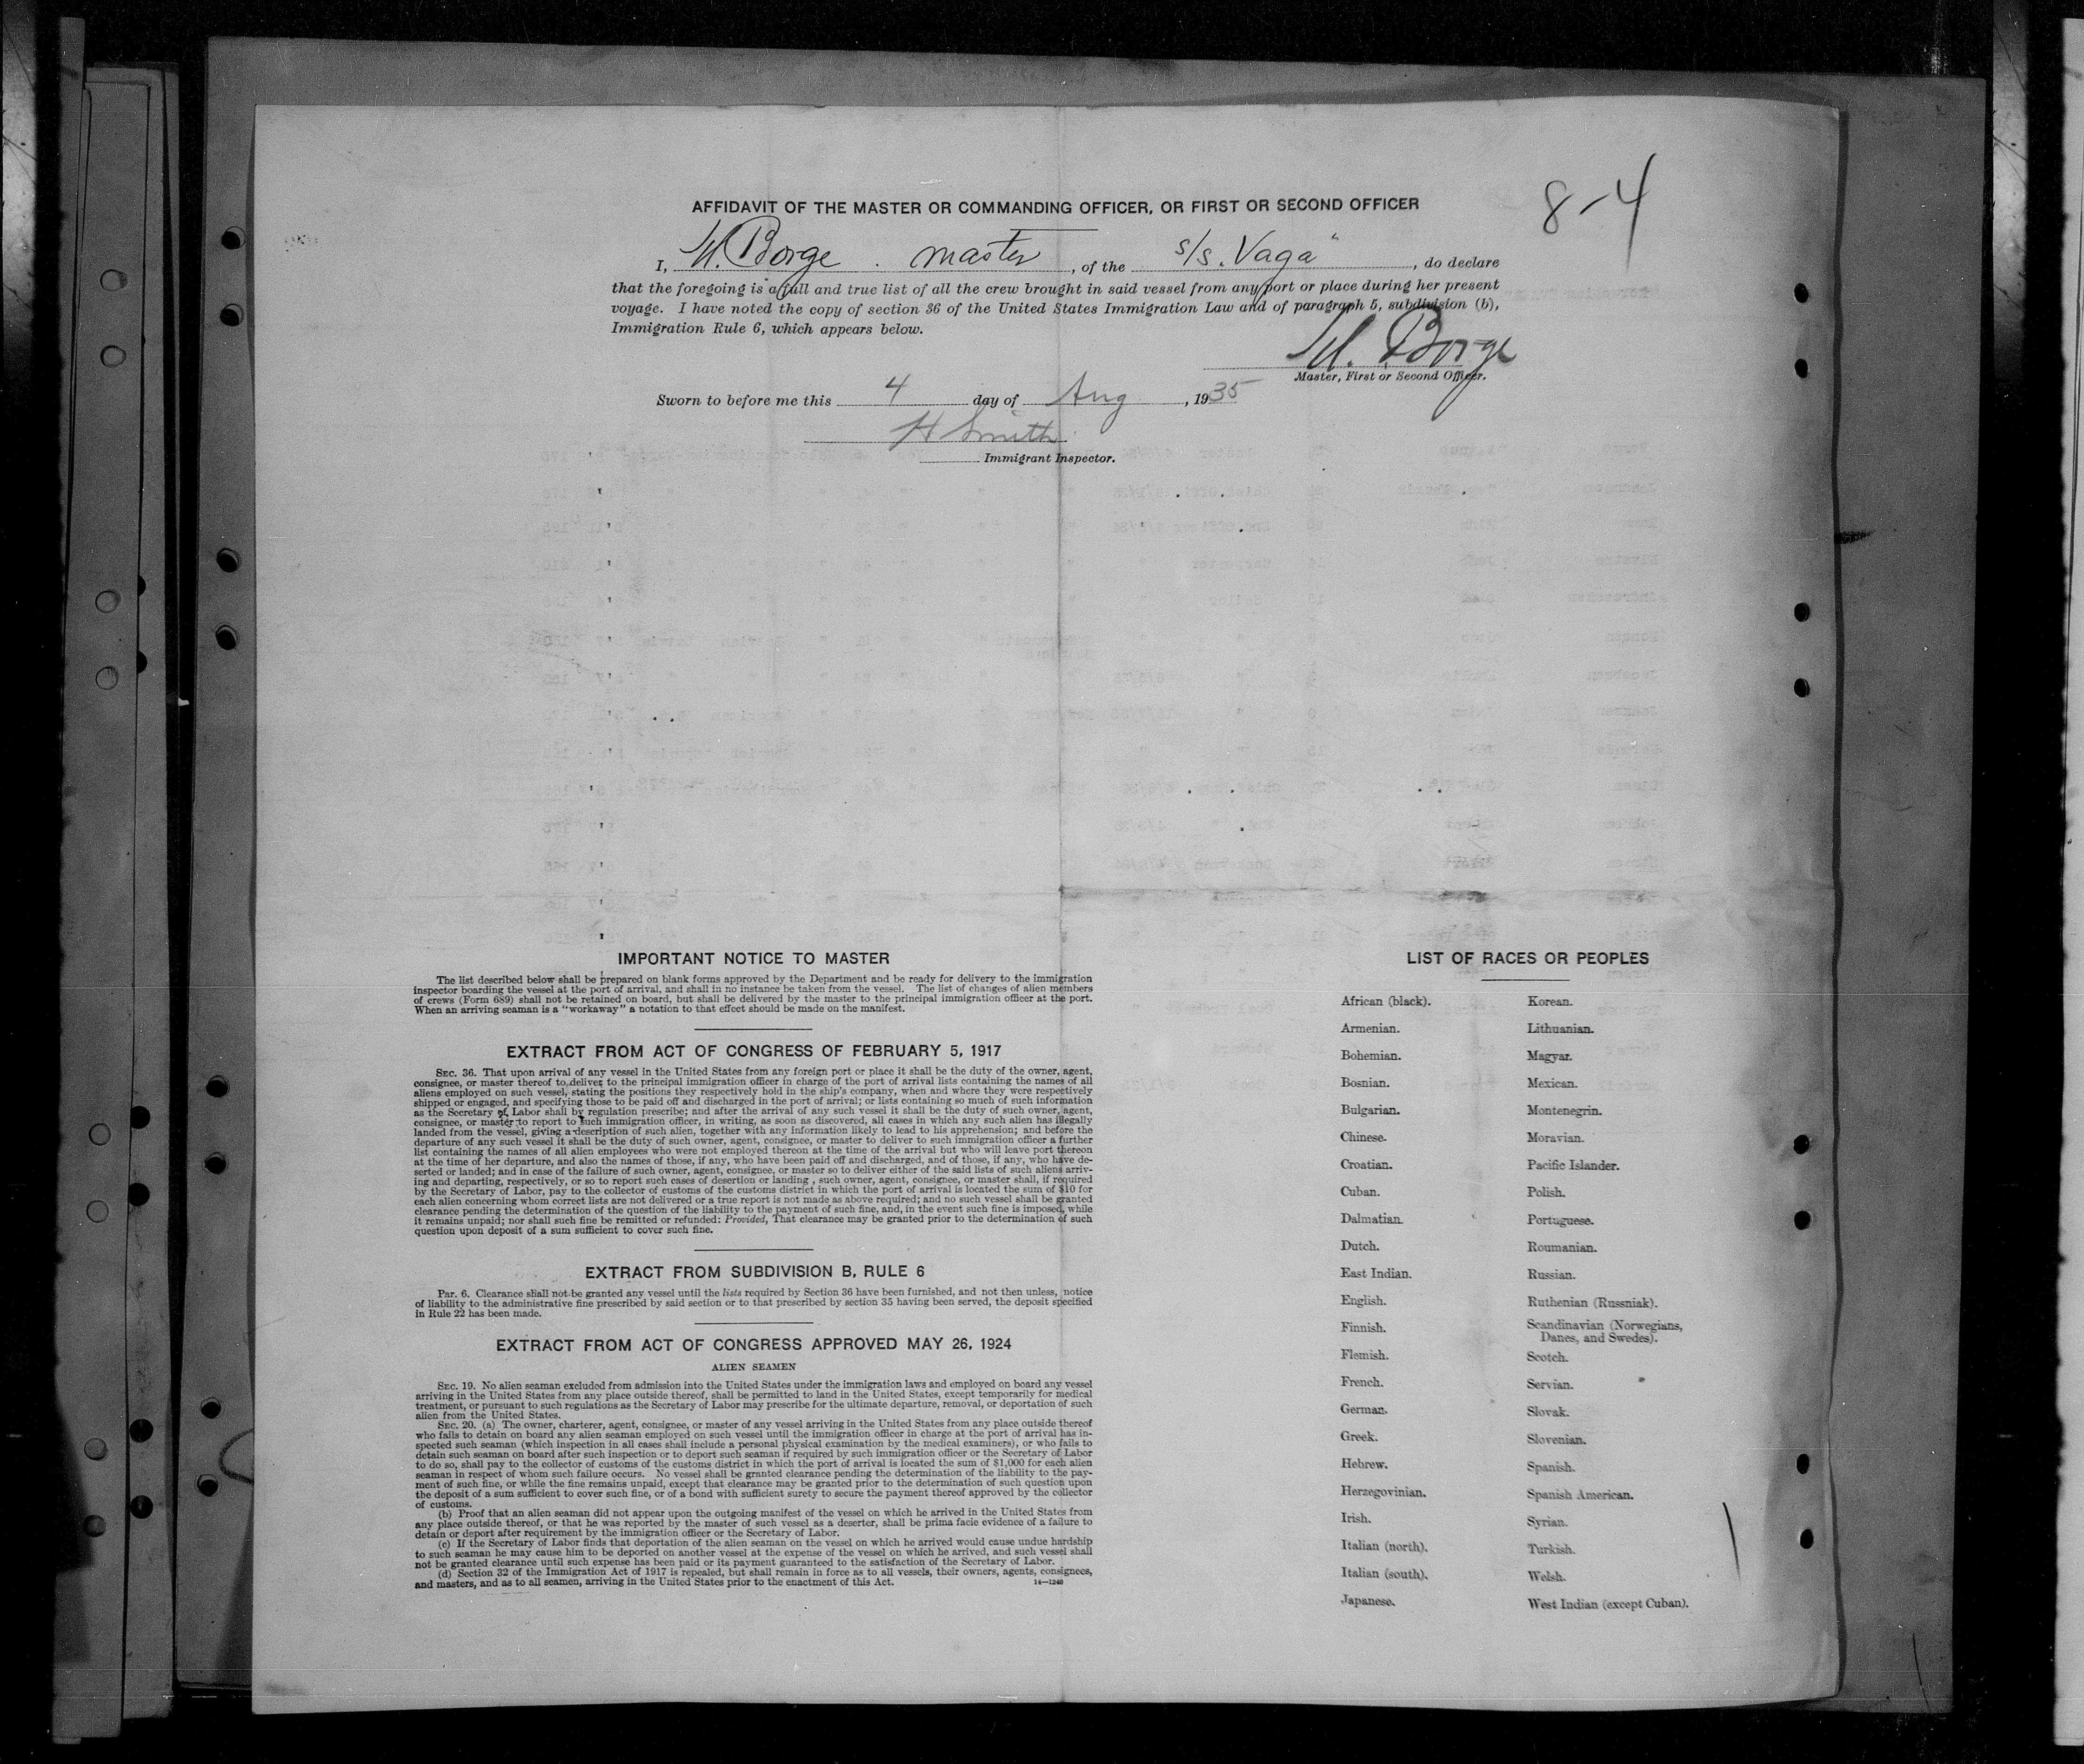 8-4
AFFIDAVIT OF THE MASTER OR COMMANDING OFFICER, OR FIRST OR SECOND OFFICER
I, M. Borge . master, of the s/s. Vaga", do declare
that the foregoing is a full and true list of all the crew brought in said vessel from any port or place during her present
voyage. I have noted the copy of section 36 of the United States Immigration Law and of paragraph 5, subdivision (b),
Immigration Rule 6, which appears below.
M. Borge
Master, First or Second Officer.
Sworn to before me this 4 day of Aug, 1935
H Smith
Immigrant Inspector.
IMPORTANT NOTICE TO MASTER
The list described below shall be prepared on blank forms approved by the Department and be ready for delivery to the immigration
inspector boarding the vessel at the port of arrival, and shall in no instance be taken from the vessel. The list of changes of alien members
of crews (Form 689) shall not be retained on board, but shall be delivered by the master to the principal immigration officer at the port.
When an arriving seaman is a "workaway" a notation to that effect should be made on the manifest.
EXTRACT FROM ACT OF CONGRESS OF FEBRUARY 5, 1917
SEC. 36. That upon arrival of any vessel in the United States from any foreign port or place it shall be the duty of the owner, agent,
consignee, or master thereof to deliver to the principal immigration officer in charge of the port of arrival lists containing the names of all
aliens employed on such vessel, stating the positions they respectively hold in the ship's company, when and where they were respectively
shipped or engaged, and specifying those to be paid off and discharged in the port of arrival; or lists containing so much of such information
as the Secretary of Labor shall by regulation prescribe; and after the arrival of any such vessel it shall be the duty of such owner, agent,
consignee, or master to report to such immigration officer, in writing, as soon as discovered, all cases in which any such alien has illegally
landed from the vessel, giving a description of such alien, together with any information likely to lead to his apprehension; and before the
departure of any such vessel it shall be the duty of such owner, agent, consignee, or master to deliver to such immigration officer a further
list containing the names of all alien employees who were not employed thereon at the time of the arrival but who will leave port thereon
at the time of her departure, and also the names of those, if any, who have been paid off and discharged, and of those, if any, who have de-
serted or landed; and in case of the failure of such owner, agent, consignee, or master so to deliver either of the said lists of such aliens arriv-
ing and departing, respectively, or so to report such cases of desertion or landing , such owner, agent, consignee, or master shall, if required
by the Secretary of Labor, pay to the collector of customs of the customs district in which the port of arrival is located the sum of $10 for
each alien concerning whom correct lists are not delivered or a true report is not made as above required; and no such vessel shall be granted
clearance pending the determination of the question of the liability to the payment of such fine, and, in the event such fine is imposed, while
it remains unpaid; nor shall such fine be remitted or refunded: Provided, That clearance may be granted prior to the determination of such
question upon deposit of a sum sufficient to cover such fine.
EXTRACT FROM SUBDIVISION B, RULE 6
Par. 6. Clearance shall not be granted any vessel until the lists required by Section 36 have been furnished, and not then unless, notice
of liability to the administrative fine prescribed by said section or to that prescribed by section 35 having been served, the deposit specified
in Rule 22 has been made.
EXTRACT FROM ACT OF CONGRESS APPROVED MAY 26, 1924
ALIEN SEAMEN
SEC. 19. No alien seaman excluded from admission into the United States under the immigration laws and employed on board any vessel
arriving in the United States from any place outside thereof, shall be permitted to land in the United States, except temporarily for medical
treatment, or pursuant to such regulations as the Secretary of Labor may prescribe for the ultimate departure, removal, or deportation of such
alien from the United States.
SEC. 20. (a) The owner, charterer, agent, consignee, or master of any vessel arriving in the United States from any place outside thereof
who fails to detain on board any alien seaman employed on such vessel until the immigration officer in charge at the port of arrival has in-
spected such seaman (which inspection in all cases shall include a personal physical examination by the medical examiners), or who fails to
detain such seaman on board after such inspection or to deport such seaman if required by such immigration officer or the Secretary of Labor
to do so, shall pay to the collector of customs of the customs district in which the port of arrival is located the sum of $1,000 for each alien
seaman in respect of whom such failure occurs. No vessel shall be granted clearance pending the determination of the liability to the pay-
ment of such fine, or while the fine remains unpaid, except that clearance may be granted prior to the determination of such question upon
the deposit of a sum sufficient to cover such fine, or of a bond with sufficient surety to secure the payment thereof approved by the collector
of customs.
(b) Proof that an alien seaman did not appear upon the outgoing manifest of the vessel on which he arrived in the United States from
any place outside thereof, or that he was reported by the master of such vessel as a deserter, shall be prima facie evidence of a failure to
detain or deport after requirement by the immigration officer or the Secretary of Labor.
(c) If the Secretary of Labor finds that deportation of the alien seaman on the vessel on which he arrived would cause undue hardship
to such seaman he may cause him to be deported on another vessel at the expense of the vessel on which he arrived, and such vessel shall
not be granted clearance until such expense has been paid or its payment guaranteed to the satisfaction of the Secretary of Labor.
(d) Section 32 of the Immigration Act of 1917 is repealed, but shall remain in force as to all vessels, their owners, agents, consignees,
and masters, and as to all seamen, arriving in the United States prior to the enactment of this Act.
14—1240
LIST OF RACES OR PEOPLES
African (black).
Armenian.
Bohemian.
Bosnian.
Bulgarian.
Chinese.
Croatian.
Cuban.
Dalmatian.
Dutch.
East Indian.
English.
Finnish.
Flemish.
French.
German.
Greek.
Hebrew.
Herzegovinian.
Irish.
Italian (north).
Italian (south).
Japanese.
Korean.
Lithuanian.
Magyar.
Mexican.
Montenegrin.
Moravian.
Pacific Islander.
Polish.
Portuguese.
Roumanian.
Russian.
Ruthenian (Russniak).
Scandinavian (Norwegians,
Danes, and Swedes).
Scotch.
Servian.
Slovak.
Slovenian.
Spanish.
Spanish American.
Syrian.
Turkish.
Welsh.
West Indian (except Cuban).